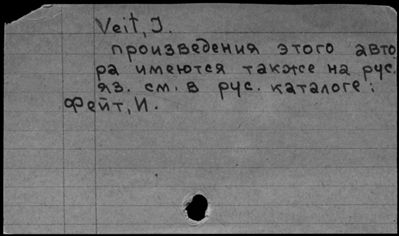 Veit, J.
произведения этого авто
ра имеются также на рус.
яз. см. в рус. каталоге:
Фейт, И.